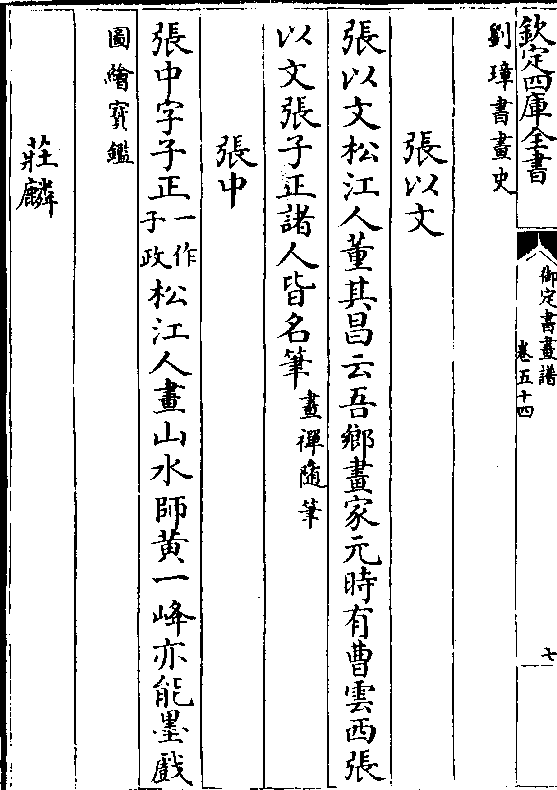 欽定四庫全書
御定書畫譜
卷五十四
七
劉璋書畫史
張以文
張以文松江人董其昌云吾鄉畫家元時有曹雲西張
以文張子正諸人皆名筆畫禪隨筆
張中
張中字子正一作子政松江人畫山水師黄一峰亦能墨戲
圖繪寳鑑
莊麟